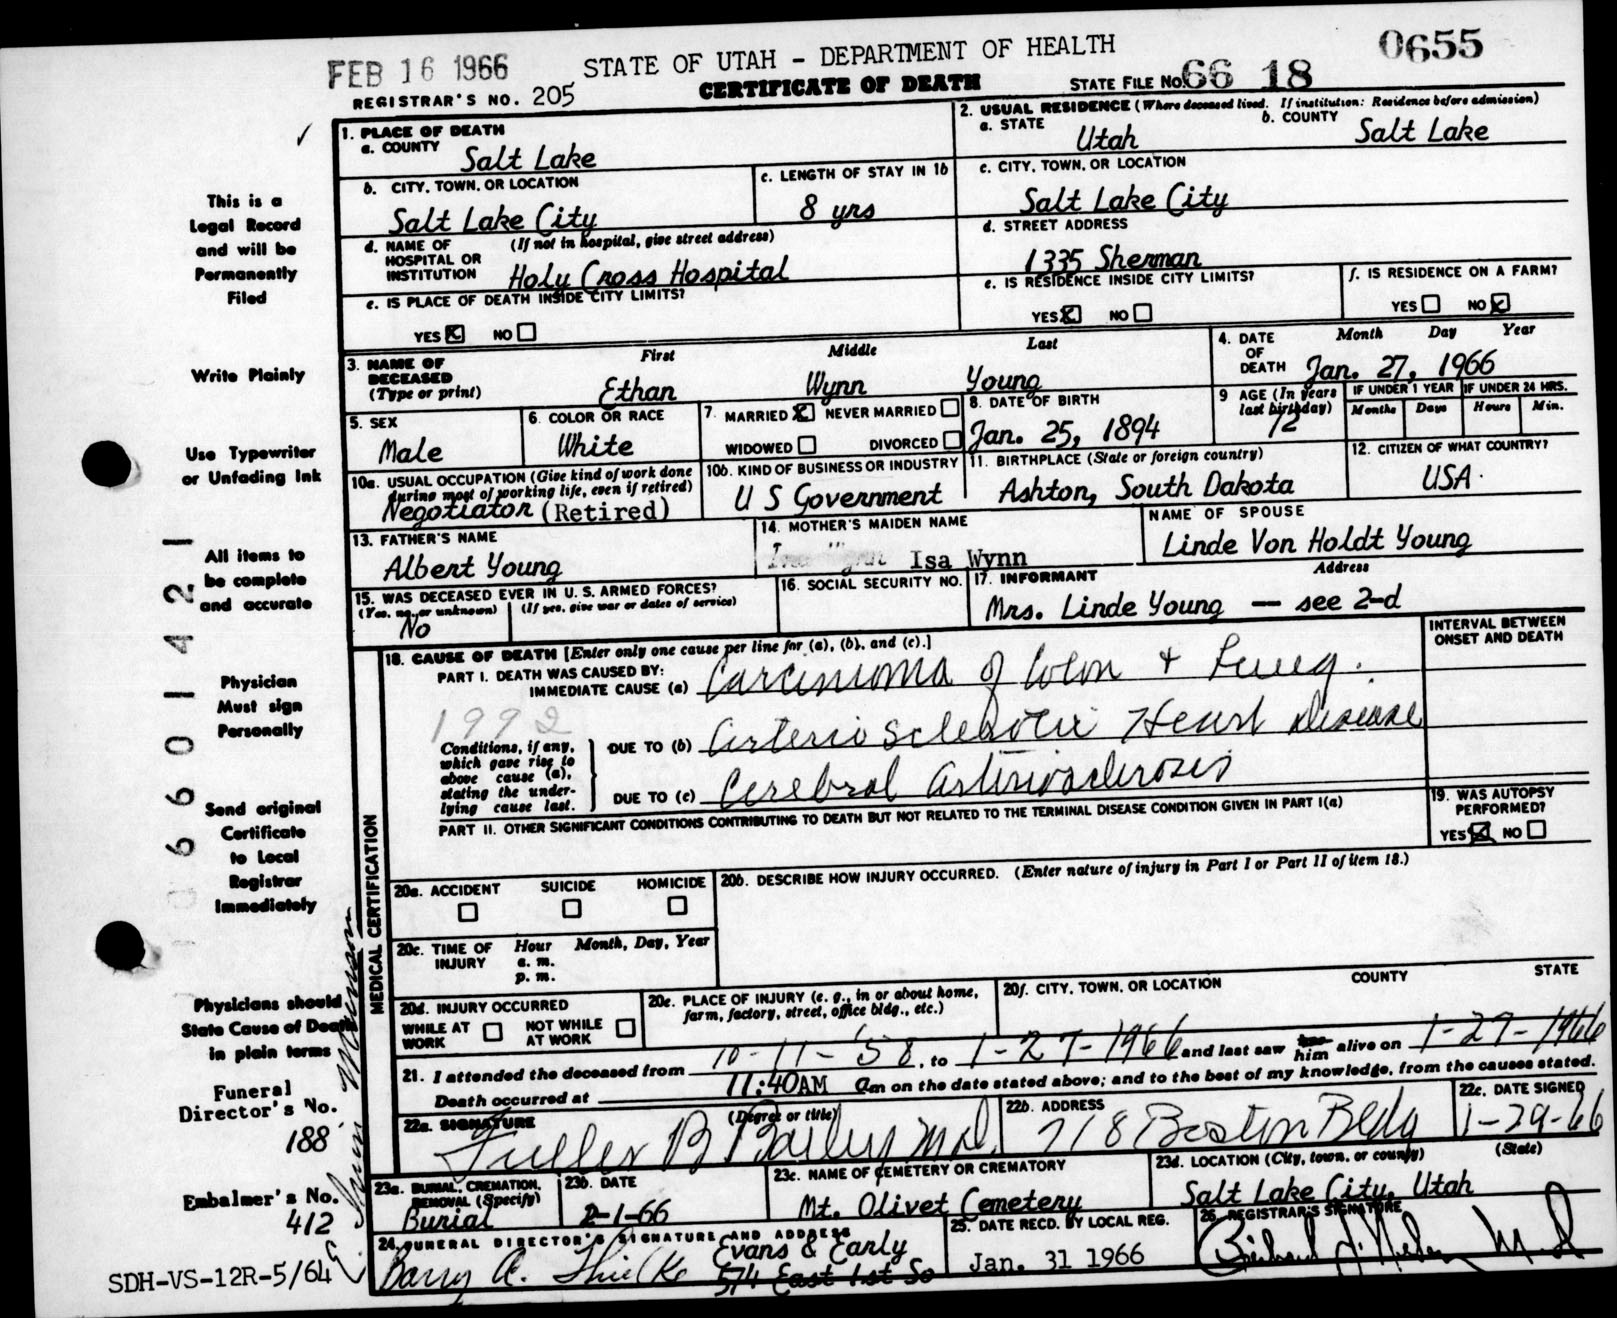 FEB 16 1966
STATE OF UTAH - DEPARTMENT OF HEALTH
0655
REGISTRAR'S NO. 205
CERTIFICATE OF DEATH
STATE FILE No. 66 18
This is a
Legal Record
and will be
Permanently
Filed
Write Plainly
Use Typewriter
or Unfading Ink
All items to
be complete
and accurate
Physician
Must sign
Personally
Send original
Certificate
to Local
Registrar
Immediately
Physicians should
State Cause of Death
in plain terms
Funeral
Director's No.
188
Embalmer's No.
412
SDH-VS-12R-5/64
1. PLACE OF DEATH
a. COUNTY Salt Lake
2. USUAL RESIDENCE (Where deceased lived. If institution: Residence before admission)
a. STATE Utah
b. COUNTY Salt Lake
b. CITY, TOWN, OR LOCATION
Salt Lake City
c. LENGTH OF STAY IN 1b
8 yrs
c. CITY, TOWN, OR LOCATION
Salt Lake City
d. NAME OF HOSPITAL OR INSTITUTION (If not in hospital, give street address)
Holy Cross Hospital
d. STREET ADDRESS
1335 Sherman
e. IS PLACE OF DEATH INSIDE CITY LIMITS?
YES X NO
e. IS RESIDENCE INSIDE CITY LIMITS?
YES X NO
f. IS RESIDENCE ON A FARM?
YES NO X
3. NAME OF DECEASED (Type or print)
First Middle Last
Ethan Wynn Young
4. DATE OF DEATH Month Day Year
Jan. 27, 1966
5. SEX
Male
6. COLOR OR RACE
White
7. MARRIED X NEVER MARRIED
WIDOWED DIVORCED
8. DATE OF BIRTH
Jan. 25, 1894
9 AGE (In years last birthday)
72
IF UNDER 1 YEAR
Months Days
IF UNDER 24 HRS.
Hours Min.
10a. USUAL OCCUPATION (Give kind of work done during most of working life, even if retired)
Negotiator (Retired)
10b. KIND OF BUSINESS OR INDUSTRY
U S Government
11. BIRTHPLACE (State or foreign country)
Ashton, South Dakota
12. CITIZEN OF WHAT COUNTRY?
USA.
13. FATHER'S NAME
Albert Young
14. MOTHER'S MAIDEN NAME
Isa Wynn
NAME OF SPOUSE
Linde Von Holdt Young
15. WAS DECEASED EVER IN U. S. ARMED FORCES?
(Yes, no, or unknown) (If yes, give war or dates of service)
No
16. SOCIAL SECURITY NO.
17. INFORMANT Address
Mrs. Linde Young — see 2-d
MEDICAL CERTIFICATION
18. CAUSE OF DEATH [Enter only one cause per line for (a), (b), and (c).]
INTERVAL BETWEEN ONSET AND DEATH
PART I. DEATH WAS CAUSED BY:
IMMEDIATE CAUSE (a) Carcinoma of Colon + Lung.
1992
Conditions, if any, which gave rise to above cause (a), stating the underlying cause last.
DUE TO (b) Arteriosclerotic Heart Disease
DUE TO (c) Cerebral Arteriosclerosis
PART II. OTHER SIGNIFICANT CONDITIONS CONTRIBUTING TO DEATH BUT NOT RELATED TO THE TERMINAL DISEASE CONDITION GIVEN IN PART I(a)
19. WAS AUTOPSY PERFORMED?
YES X NO
20a. ACCIDENT SUICIDE HOMICIDE
20b. DESCRIBE HOW INJURY OCCURRED. (Enter nature of injury in Part I or Part II of item 18.)
20c. TIME OF INJURY Hour Month, Day, Year
a. m.
p. m.
20d. INJURY OCCURRED
WHILE AT WORK NOT WHILE AT WORK
20e. PLACE OF INJURY (e. g., in or about home, farm, factory, street, office bldg., etc.)
20f. CITY, TOWN, OR LOCATION COUNTY STATE
21. I attended the deceased from 10-11-58, to 1-27-1966 and last saw him alive on 1-27-1966
Death occurred at 11:40AM am on the date stated above; and to the best of my knowledge, from the causes stated.
22a. SIGNATURE (Degree or title)
Fuller B Bailey M.D.
22b. ADDRESS
718 Boston Bldg
22c. DATE SIGNED
1-29-66
23a. BURIAL, CREMATION, REMOVAL (Specify)
Burial
23b. DATE
2-1-66
23c. NAME OF CEMETERY OR CREMATORY
Mt. Olivet Cemetery
23d. LOCATION (City, town, or county) (State)
Salt Lake City, Utah
24. FUNERAL DIRECTOR'S SIGNATURE AND ADDRESS
Evans & Early
574 East 1st So
25. DATE RECD. BY LOCAL REG.
Jan. 31 1966
26. REGISTRAR'S SIGNATURE
06601421